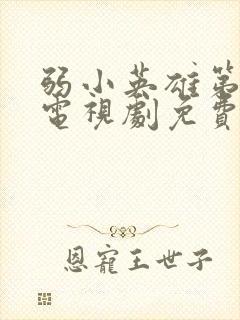 弱小英雄第
電視劇免費
恩寵王世子